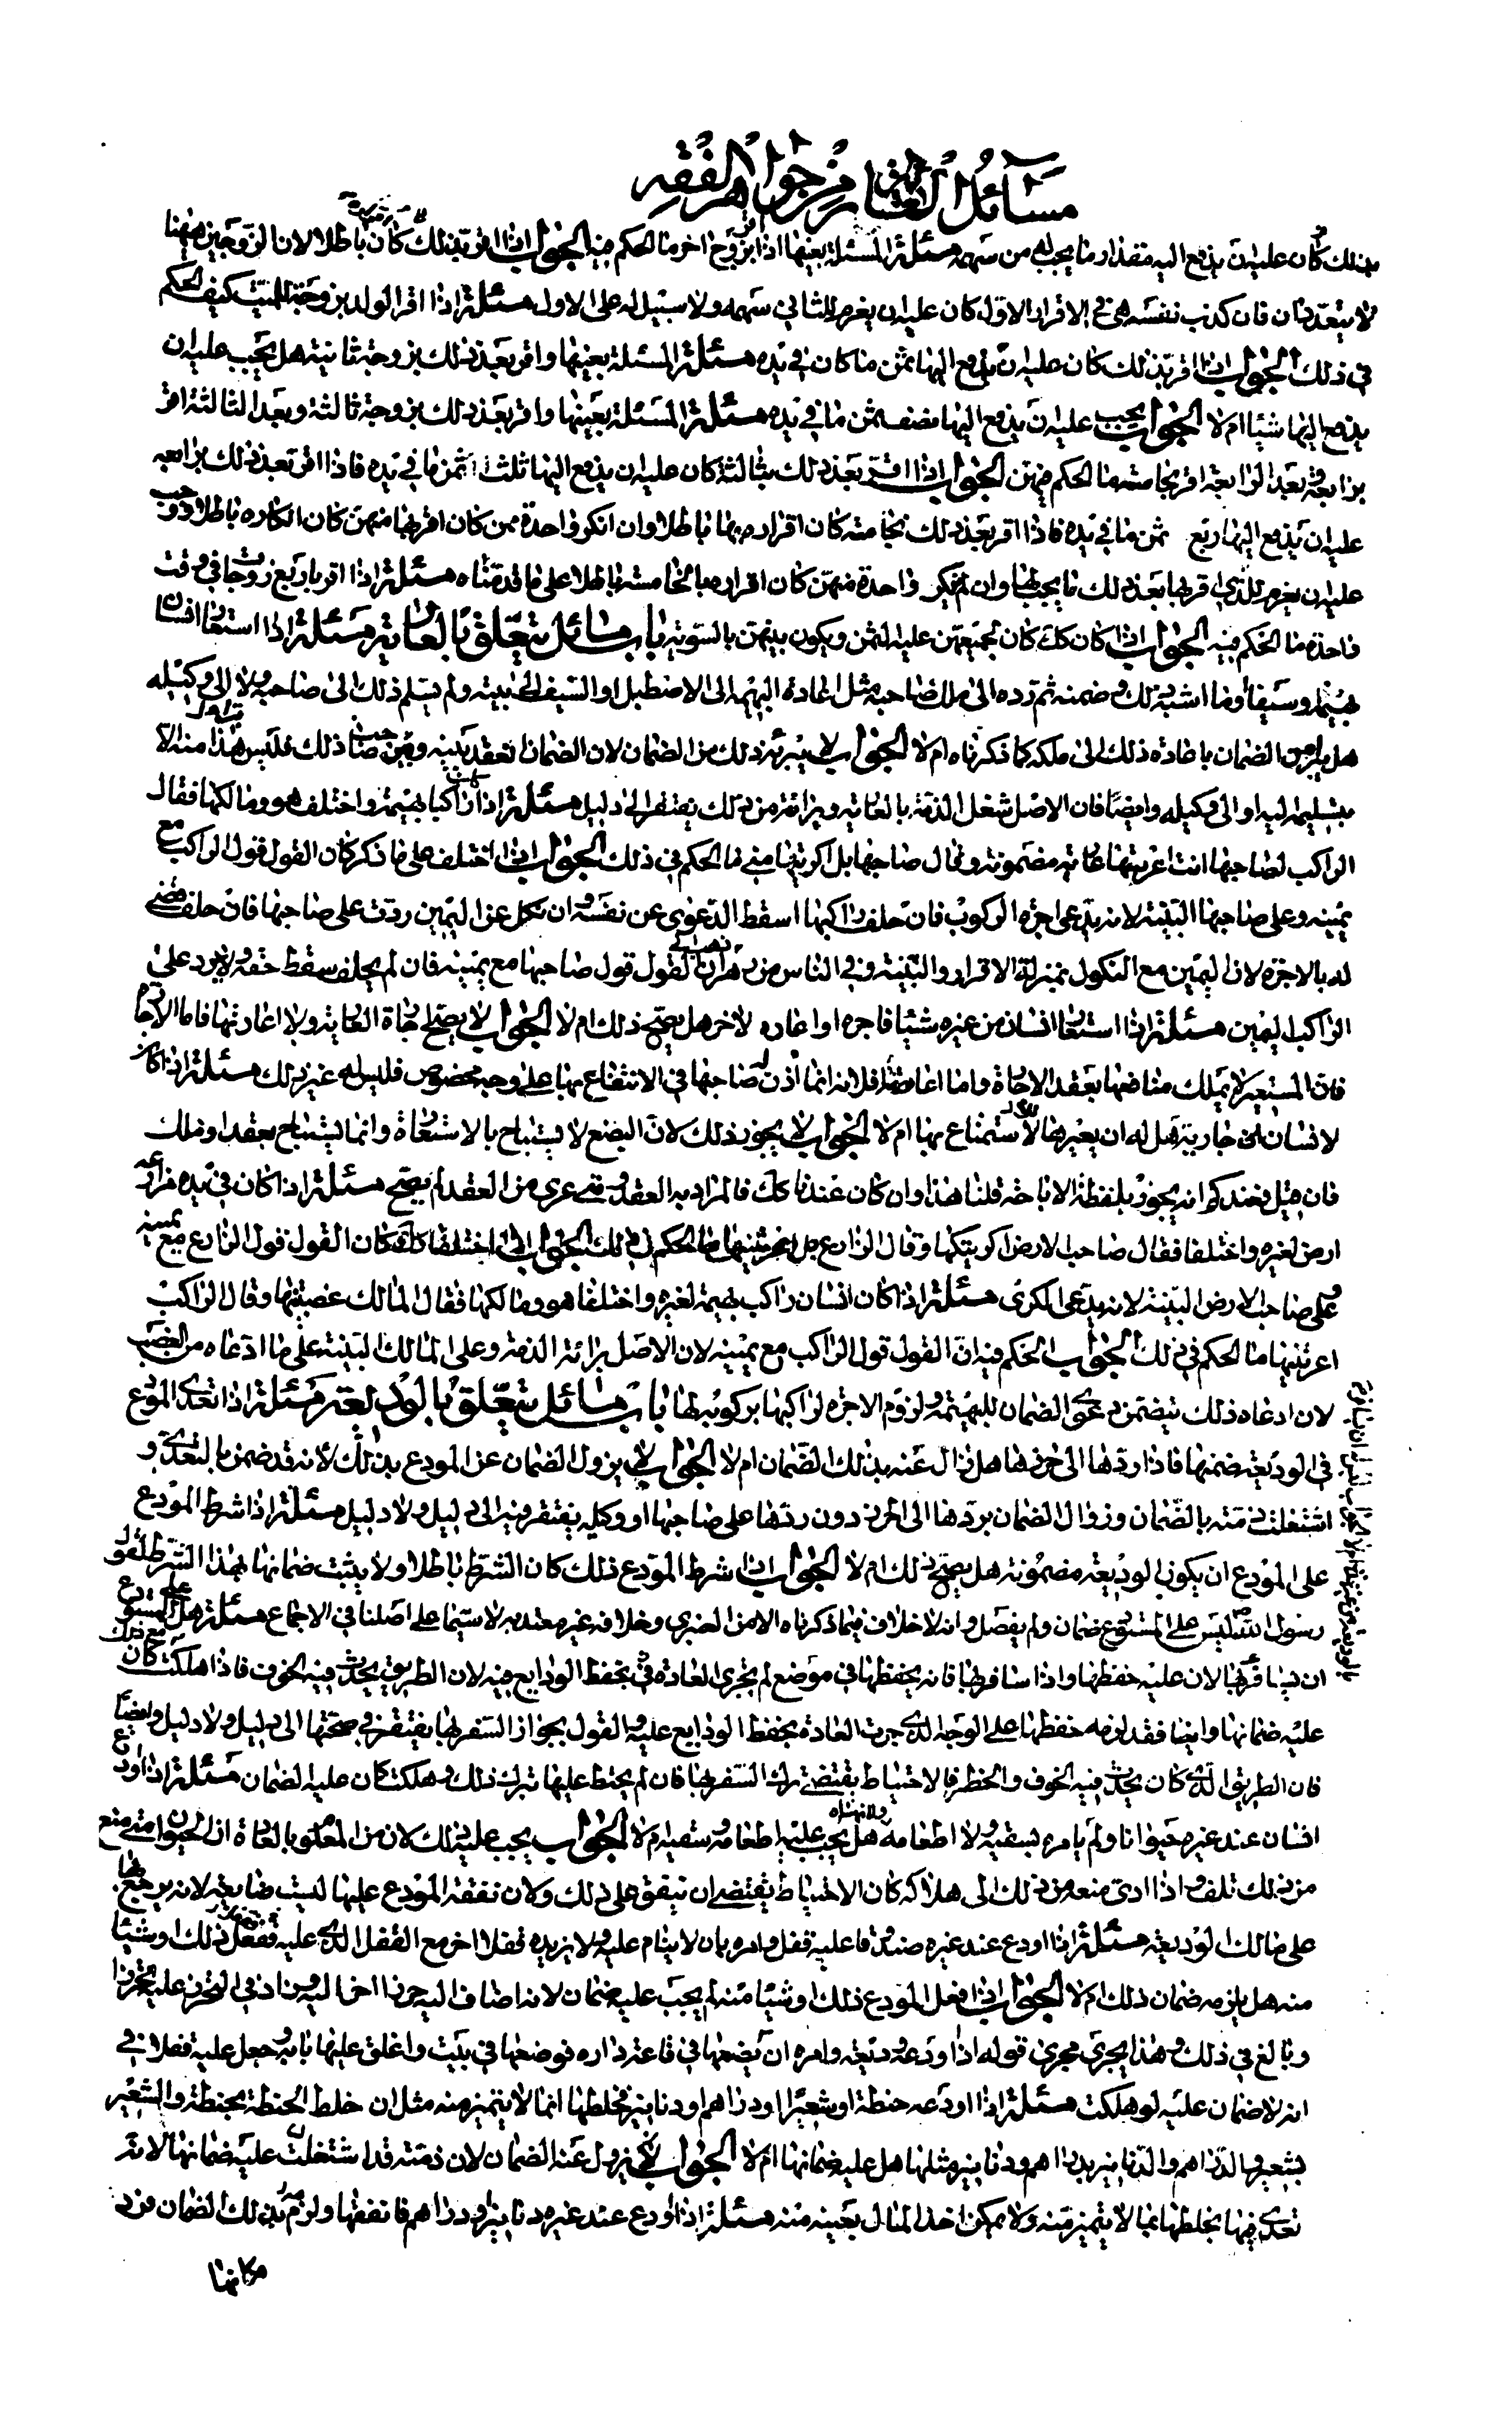 مسائل العارية من جواهر الفقه
بذلك كان عليه ان يدفع اليه مقدار ما يجب له من سهمه مسئلة المسئلة بعينها اذا اقر بزوج اخر ما الحكم فيه الجواب اذا اقر بذلك كان باطلا لان الزوجين ههنا
لا يتعددان فان كذب نفسه في الاقرار الاول كان عليه ان يغرم للثاني سهمه ولا سبيل له على الاول مسئلة اذا اقر الولد بزوجة للميت كيف الحكم
في ذلك الجواب اذا اقر بذلك كان عليه ان يدفع اليها ثمن ما كان في يده مسئلة المسئلة بعينها واقر بعد ذلك بزوجة ثانية هل يجب عليه ان
يدفع اليها شيئا ام لا الجواب يجب عليه ان يدفع اليها نصف ثمن ما في يده مسئلة المسئلة بعينها واقر بعد ذلك بزوجة ثالثة وبعد الثالثة اقر
برابعة وبعد الرابعة اقر بخامسة ما الحكم فيهن الجواب اذا اقر بعد ذلك بثالثة كان عليه ان يدفع اليها ثلث ثمن ما في يده فاذا اقر بعد ذلك برابعه
عليه ان يدفع اليها ربع ثمن ما في يده فاذا اقر بعد ذلك بخامسة كان اقراره بها باطلا وان انكر واحدة ممن كان اقر بها منهن كان انكاره باطلا ووجب
عليه ان يغرم للذي اقر بها بعد ذلك ما يجب لها وان لم ينكر واحدة منهن كان اقراره بالخامسة باطلا على ما قدمناه مسئلة اذا اقر باربع زوجات في وقت
واحدة ما الحكم فيه الجواب اذا كان كك كان لجميعهن عليه الثمن ويكون بينهن بالسوية باب مسائل يتعلق بالعارية مسئلة اذا استعار انسان
بهيمة او سيفا او ما اشبه ذلك وضمنه ثم رده الى ملك صاحبه مثل اعادة البهيمة الى الاصطبل او السيف الى بيته ولم يسلم ذلك الى صاحبه ولا الى وكيله
هل يبرئ من الضمان باعادة ذلك الى ملكه كما ذكرناه ام لا الجواب لا يبرئه ذلك من الضمان لان الضمان انعقد بينه وبين صاحب ذلك فليس يبرء هذا منه الا
بتسليمه اليه او الى وكيله وايضا فان الاصل شغل الذمة بالعارية وبرائة من ذلك يفتقر الى دليل مسئلة اذا كان راكبا بهيمة واختلف هو ومالكها فقال
الراكب لصاحبها انت اعرتنيها عارية مضمونة وقال صاحبها بل اكريتها مني ما الحكم في ذلك الجواب اذا اختلف على ما ذكر كان القول قول الراكب مع
يمينه وعلى صاحبها البينة لانه يدعي اجرة الركوب فان حلف راكبها اسقط الدعوى عن نفسه وان نكل عن اليمين ردت على صاحبها فان حلف قضى
له بالاجرة لان اليمين مع النكول بمنزلة الاقرار والبينة وفي الناس من ذهب الى ان القول قول صاحبها مع يمينه فان لم يحلف سقط حقه ولا يرد على
الراكب اليمين مسئلة اذا استعار انسان من غيره شيئا فاجره او اعاره لاخر هل يصح ذلك ام لا الجواب لا يصح اجارة العارية ولا اعارتها فاما الاجارة
فان المستعير لا يملك منافعها بعقد الاجارة واما اعارتها فلانه انما اذن له صاحبها في الانتفاع بها على وجه مخصوص فليس له غير ذلك مسئلة اذا كان
لانسان جارية هل له ان يعيرها للاستمتاع بها ام لا الجواب لا يجوز ذلك لان البضع لا يستباح بالاستعارة وانما يستباح بعقد او ملك
فان قيل عندكم انه يجوز بلفظة الاباحة قلنا هذا وان كان عندنا كك فالمراد به العقد ومتى عري من العقد لم يصح مسئلة اذا كان في يده مزارعه
ارض لغيره واختلفا فقال صاحب الارض اكريتكها وقال الزارع بل اعرتنيها ما الحكم في ذلك الجواب اذا اختلفا كك كان القول قول الزارع مع يمينه
وعلى صاحب الارض البينة لانه يدعي الكرى مسئلة اذا كان انسان راكب بهيمة لغيره واختلفا هو ومالكها فقال المالك غصبتنيها وقال الراكب
اعرتنيها ما الحكم في ذلك الجواب الحكم فيه ان القول قول الراكب مع يمينه لان الاصل برائة الذمة وعلى المالك البينة على ما ادعاه من الغصب
لان ادعاه ذلك يتضمن دعوى الضمان للبهيمة ولزوم الاجرة لراكبها بركوبه لها باب مسائل يتعلق بالوديعة مسئلة اذا تعدى المودع
في الوديعة ضمنها فاذا ردها الى حرزها هل زال عنه بذلك الضمان ام لا الجواب لا يزول الضمان عن المودع بذلك لانه قد ضمن بالتعدي و
اشتغلت ذمته بالضمان وزوال الضمان بردها الى الحرز دون ردها على صاحبها او وكيله يفتقر فيه الى دليل ولا دليل مسئلة اذا شرط المودع
على المودع ان يكون الوديعة مضمونة هل يصح ذلك ام لا الجواب اذا شرط المودع ذلك كان الشرط باطلا ولا يثبت ضمانها بهذا الشرط لقول
رسول الله ليس على المستودع ضمان ولم يفصل وانه لا خلاف فيما ذكرناه الا من العنبري وخلافه غير معتد به لا سيما على اصلنا في الاجماع مسئلة هل للمستودع
ان يسافر بها لان عليه حفظها واذا سافر بها فانه يحفظها في موضع لم يجري العادة في بحفظ الودايع فيه لان الطريق يحدث فيه الخوف فاذا هلكت كان
عليه ضمانها وايضا فقد لزمه حفظها على الوجه الذي جرت العادة بحفظ الودايع عليه والقول بجواز السفر بها يفتقر في صحتها الى دليل ولا دليل وايضا
فان الطريق الذي كان يحدث فيه الخوف والخطر فالاحتياط يقتضي ترك السفر بها فان لم يحتط عليها بترك ذلك وهلكت كان عليه الضمان مسئلة اذا اودع
انسان عند غيره حيوانا ولم يامره بسقيه ولا اطعامه هل يجب عليه اطعامه وسقيه ام لا الجواب يجب عليه ذلك لان من المعلوم بالعادة ان الحيوان متى منع
من ذلك تلف واذا ادى منعه من ذلك الى هلاكه كان الاحتياط يقتضي ان ينفق على ذلك ولان نفقة المودع عليها ليست ضايعة لانه يرجع بها
على مالك الوديعة مسئلة اذا اودع عند غيره صندوقا عليه قفل وامره بان لا ينام عليه ولا يزيده قفلا اخر مع القفل الذي عليه ففعل ذلك او شيئا
منه هل يلزمه ضمان ذلك ام لا الجواب اذا فعل المودع ذلك او شيئا منه لم يجب عليه ضمان لانه اضاف اليه حرزا اخر اليه وزاد في التحرز عليه
وبالغ في ذلك وهذا يجري مجرى قوله اذا اودعه وديعة وامره ان يضعها في قاعة داره فوضعها في بيت واغلق عليها بابه وجعل عليه قفلا في
انه لا ضمان عليه لو هلكت مسئلة اذا اودعه حنطة او شعيرا او دراهم او دنانير فخلطها بما لا يتميز منه مثل ان خلط الحنطة بحنطة والشعير
بشعير والدراهم والدنانير بدراهم ودنانير مثلها هل عليه ضمانها ام لا الجواب لا يزول عنه الضمان لان ذمته قد اشتغلت عليه ضمانها لانه
تعدى فيها بخلطها بما لا يتميز منه ولا يمكن اخذ المال بعينه منه مسئلة اذا اودع عند غيره دنانير او دراهم فانفقها ولزمه بذلك الضمان فرد
مكانها